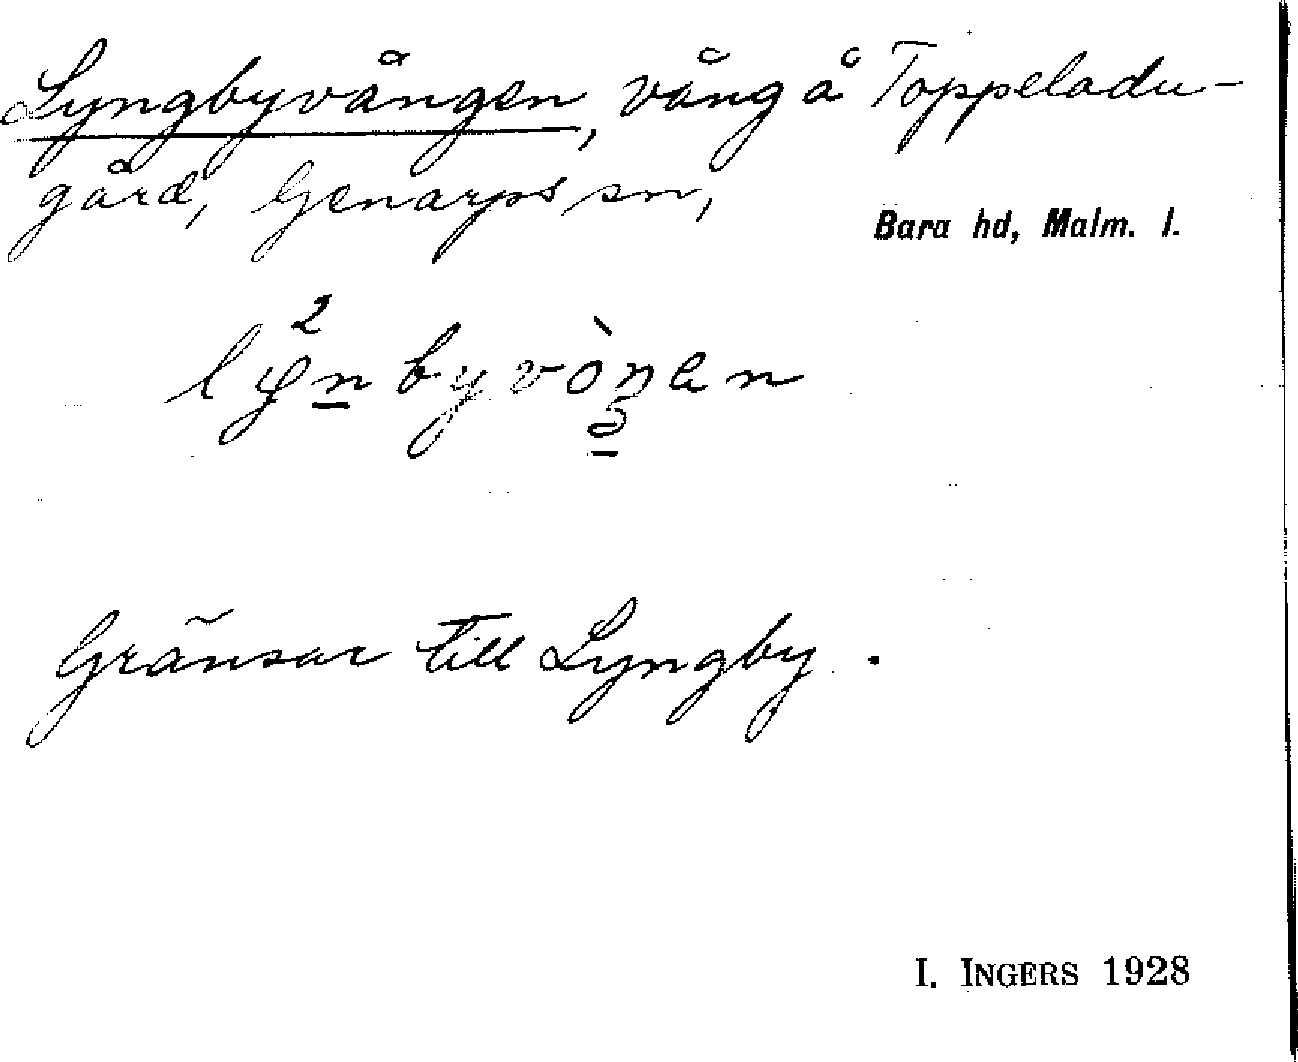 Lyngbyvången, vång å Toppeladu-
gård, Genarps sn,
Bara hd, Malm. l.
Gränsar till Lyngby.
I. INGERS 1928